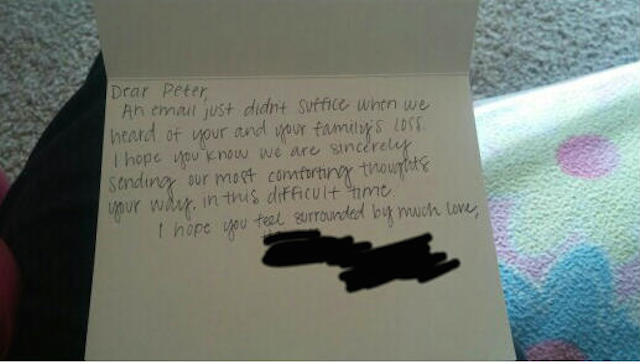 Dear Peter,
An email just didnt suffice when we
heard of your and your family's loss.
I hope you know we are sincerely
sending our most comforting thoughts
your way, in this difficult time.
I hope you feel surrounded by much love,